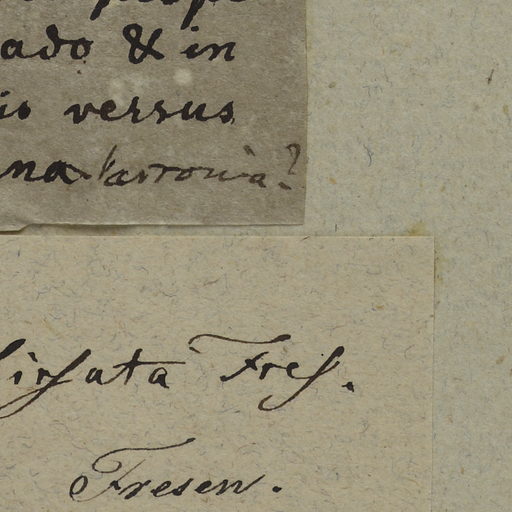 prope
ado & in
is versus
na Varronia?
hirsuta Fres.
Fresen.